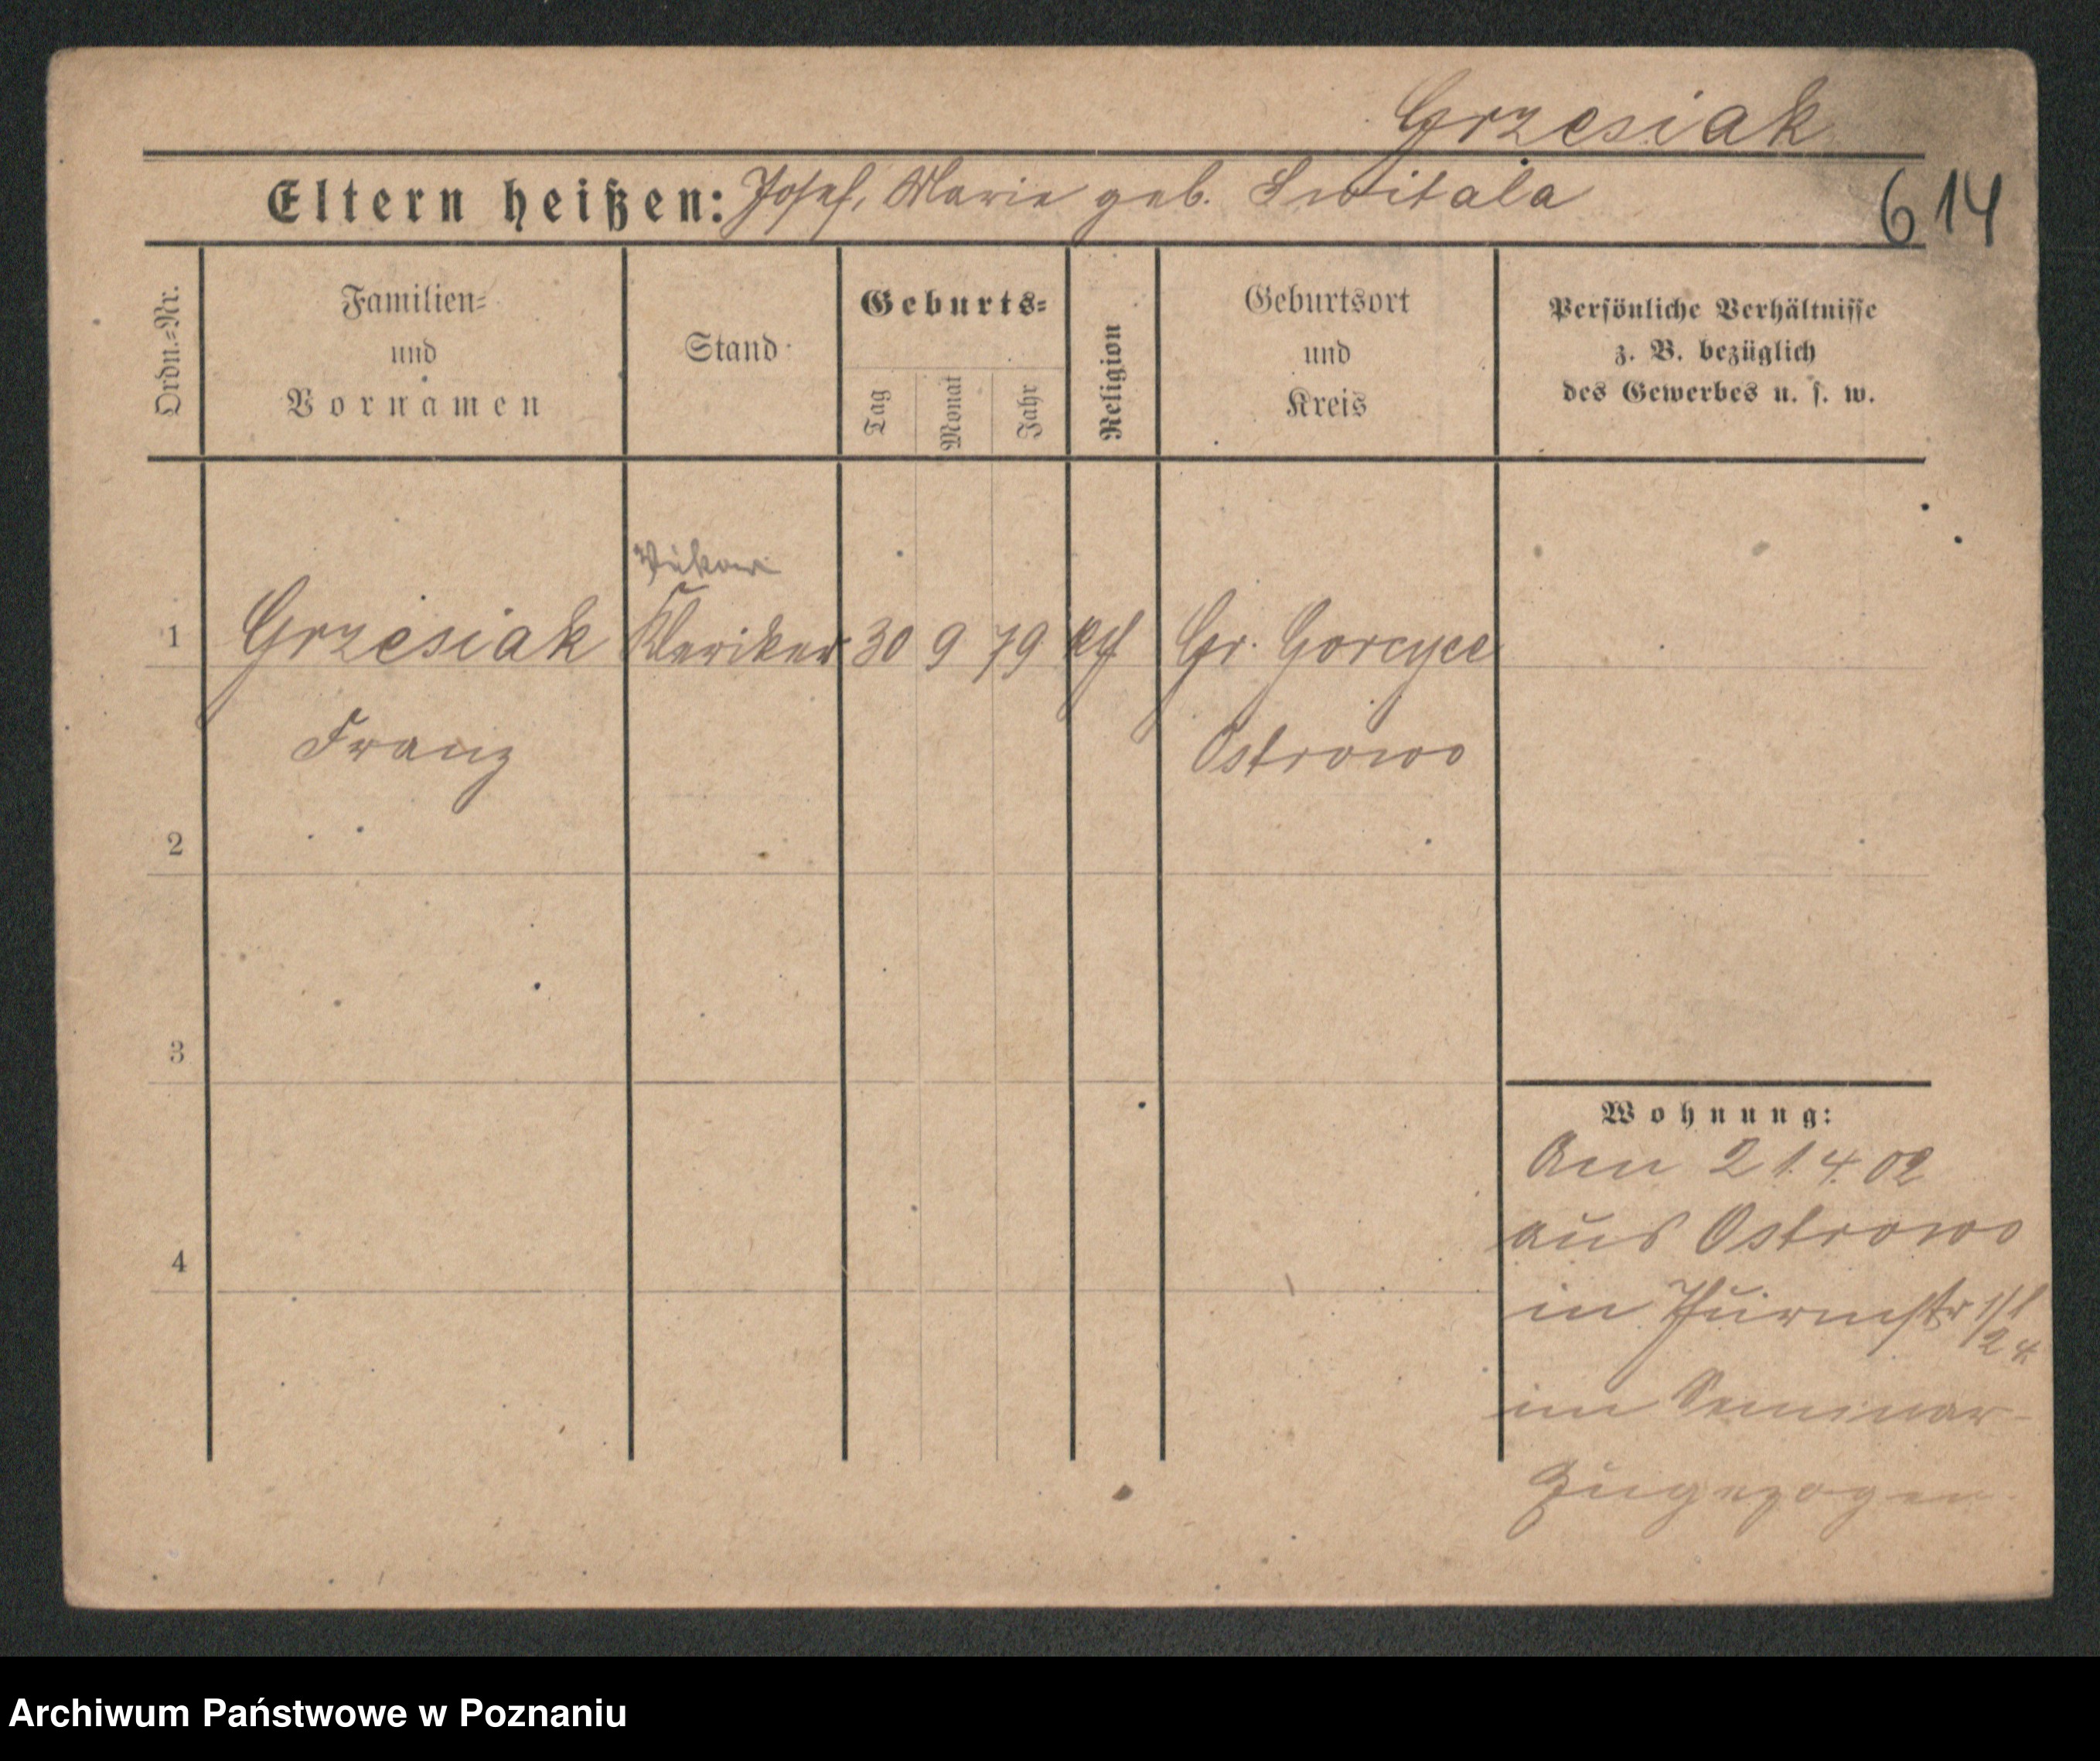 Grzesiak
Eltern heißen: Josef, Marie geb. Switala
614
Ordn.=Nr.
Familien=
und
Vornamen
Stand
Geburts=
Tag
Monat
Jahr
Religion
Geburtsort
und
Kreis
Persönliche Verhältnisse
z. B. bezüglich
des Gewerbes u. s. w.
Vikar
1 Grzesiak Kleriker 30 9 79 kth Gr. Gorcyce
Franz Ostrowo
2
3
4
Wohnung:
Am 21.4.02
aus Ostrowo
in Thurmstr
im Seminar
zugezogen
Archiwum Państwowe w Poznaniu